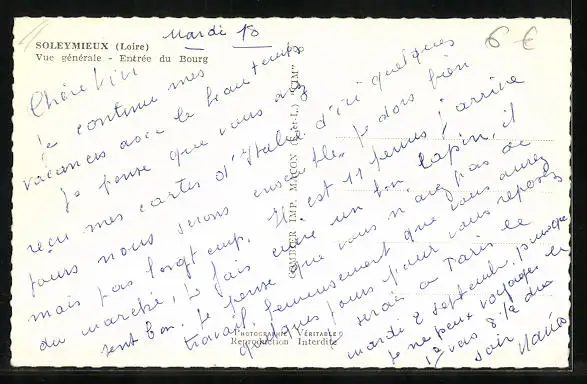 SOLEYMIEUX (Loire)
Vue générale - Entrée du Bourg
Mardi 18
6 €
Chère
Je continue mes
vacances avec le beau temps
Je pense que vous avez
reçu mes cartes d'Italie d'ici quelques
jours nous serons ensemble. Je dors bien
mais pas longtemps. Il est 11 heures j'arrive
du marché, je fais cuire un bon lapin, il
sent bon. Je pense que vous n'avez pas de
travail heureusement que vous aurez
quelques jours pour vous reposer
serai à Paris le
mardi 2 septembre, puisque
je ne peux voyager le
1er vers 8h½ du
soir
COMBIER IMP. MACON (S.-&-L.) "CIM"
PHOTOGRAPHIE VÉRITABLE
Reproduction Interdite